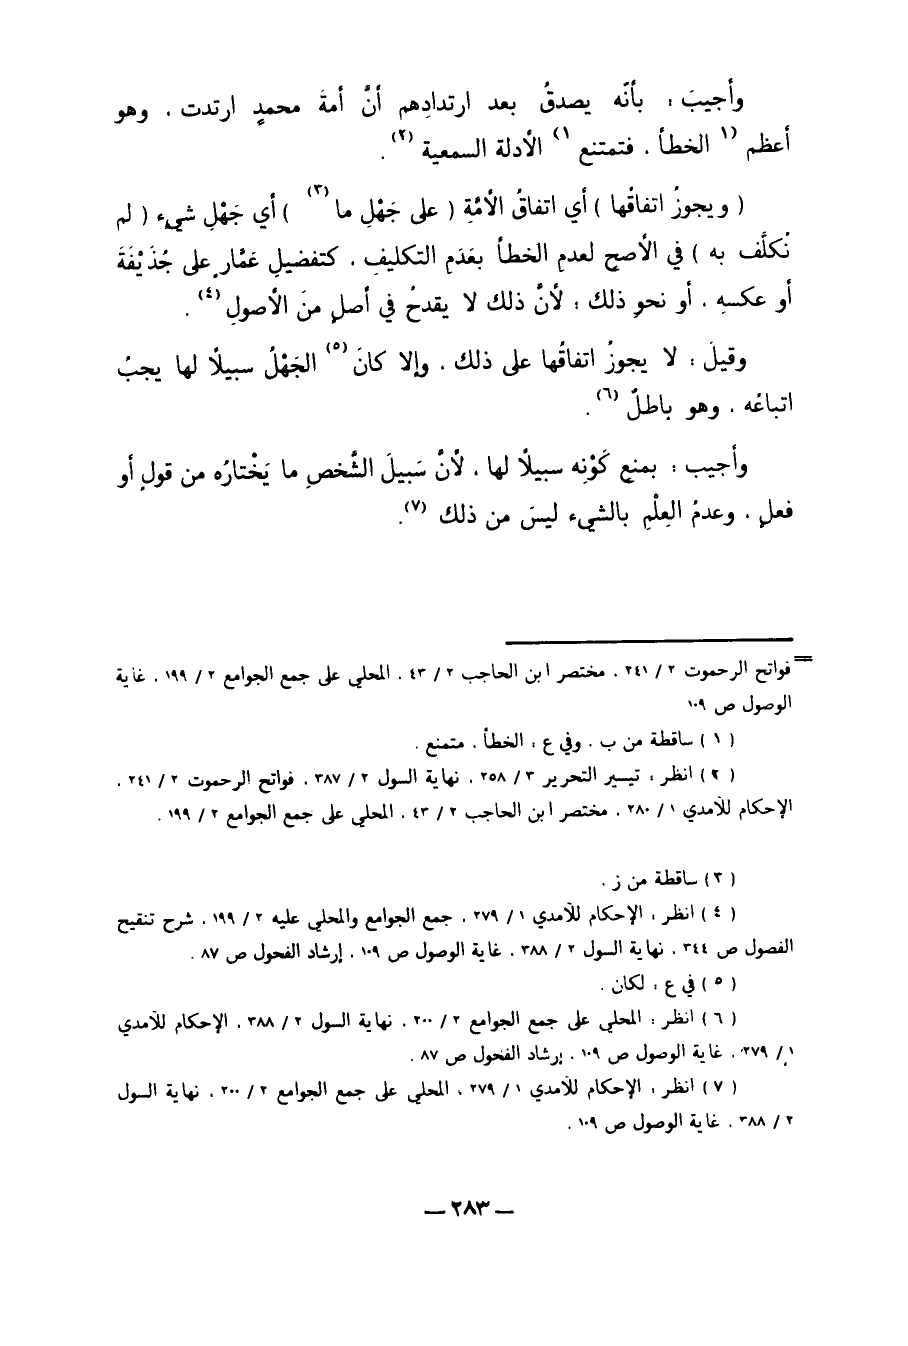 وأجيبَ : بأنَّه يصدقُ بعد ارتدادِهم أنَّ أمةَ محمدٍ ارتدت . وهو
أعظم (١ الخطأ . فتمتنع ١) الأدلة السمعية (٢) .
( ويجوزُ اتفاقُها ) أي اتفاقُ الأمْةِ ( على جَهْلِ ما (٣) ) أي جَهْلِ شيءٍ ( لم
نُكلَّف به ) في الأصح لعدمِ الخطأ بعَدَمِ التكليفِ . كتفضيلِ عَمَّارٍ على حُذَيْفَةَ
أو عكسهِ . أو نحوِ ذلك : لأنَّ ذلك لا يقدحُ في أصلٍ منَ الأصولِ (٤) .
وقيلَ : لا يجوزُ اتفاقُها على ذلك . وإلا كانَ (٥) الجَهْلُ سبيلًا لها يجبُ
اتباعُه . وهو باطلٌ (٦) .
وأجيب : بمنعِ كَوْنِه سبيلًا لها . لأنَّ سَبيلَ الشَّخصِ ما يَخْتارُه من قولٍ أو
فعلٍ . وعدمُ العِلْمِ بالشيء ليسَ من ذلك (٧).
= فواتح الرحموت ٢ / ٢٤١ . مختصر ابن الحاجب ٢ / ٤٣ . المحلي على جمع الجوامع ٢ / ١٩٩ . غاية
الوصول ص ١٠٩
( ١ ) ساقطة من ب . وفي ع : الخطأ . متمنع .
( ٢ ) انظر : تيسير التحرير ٣ / ٢٥٨ . نهاية السول ٢ / ٣٨٧ . فواتح الرحموت ٢ / ٢٤١ .
الإحكام للآمدي ١ / ٢٨٠ . مختصر ابن الحاجب ٢ / ٤٣ . المحلي على جمع الجوامع ٢ / ١٩٩ .
( ٣ ) ساقطة من ز .
( ٤ ) انظر : الإحكام للآمدي ١ / ٢٧٩ . جمع الجوامع والمحلي عليه ٢ / ١٩٩ . شرح تنقيح
الفصول ص ٣٤٤ . نهاية السول ٢ / ٣٨٨ . غاية الوصول ص ١٠٩ . إرشاد الفحول ص ٨٧ .
( ٥ ) في ع : لكان .
( ٦ ) انظر : المحلي على جمع الجوامع ٢ / ٢٠٠ . نهاية السول ٢ / ٣٨٨ . الإحكام للآمدي
١ / ٢٧٩ . غاية الوصول ص ١٠٩ . إرشاد الفحول ص ٨٧ .
( ٧ ) انظر : الإحكام للآمدي ١ / ٢٧٩ ، المحلي على جمع الجوامع ٢ / ٢٠٠ . نهاية السول
٢ / ٣٨٨ . غاية الوصول ص ١٠٩ .
— ٢٨٣ —